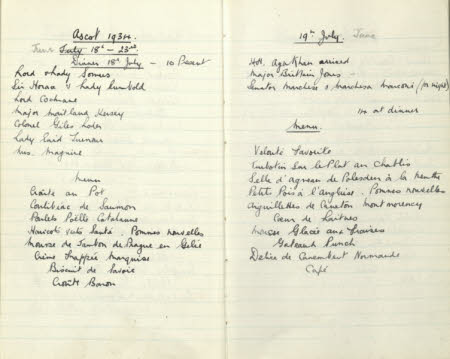 Ascot 1934
June July 18th - 23rd
Dinner 18th July - 10 Present
Lord & Lady Somers
Sir Horace & Lady Rumbold
Lord Cochrane
Major Maitland Kersey
Colonel Giles Loder
Lady Turnour
Mrs. Maguire
Menu
Croûte au Pot
Côtelettes de Saumon
Poulets Poêlés Catalane
Haricots verts Santé. Pommes nouvelles
Mousse de Jambon de Prague en Gelée
Crème Frappée Marquise
Biscuit de Savoie
Croûte Baron
19th July June
H.H. Aga Khan arrived
Major Brittain Jones -
Senator Marchese & Marchesa Marconi (no night)
14 at dinner
Menu.
Velouté Favorite
Turbotin sur le Plat au Chablis
Selle d'agneau de à la menthe
Petits Pois à l'anglaise. Pommes nouvelles
Aiguillettes de Caneton Montmorency
Coeur de Laitues
Mousse Glacée aux Fraises
Gateaux Punch
Délice de Camembert Normande
Café